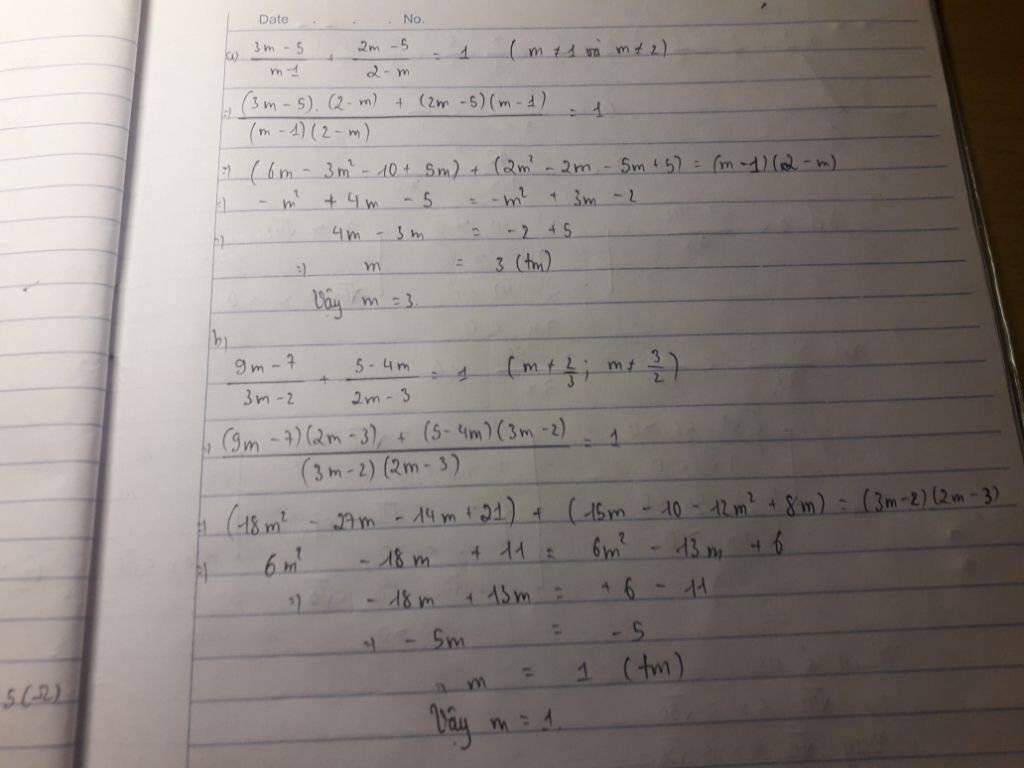 Date . . . No.
a) \frac{3m-5}{m-1} + \frac{2m-5}{2-m} = 1 (m ≠ 1 và m ≠ 2)
=) \frac{(3m-5).(2-m) + (2m-5)(m-1)}{(m-1)(2-m)} = 1
=) (6m - 3m² - 10 + 5m) + (2m² - 2m - 5m + 5) = (m-1)(2-m)
=) - m² + 4m - 5 = -m² + 3m - 2
=) 4m - 3m = -2 + 5
=) m = 3 (tm)
Vậy m = 3.
b)
\frac{9m-7}{3m-2} + \frac{5-4m}{2m-3} = 1 (m ≠ \frac{2}{3}; m ≠ \frac{3}{2})
=) \frac{(9m-7)(2m-3) + (5-4m)(3m-2)}{(3m-2)(2m-3)} = 1
=) (18m² - 27m - 14m + 21) + (15m - 10 - 12m² + 8m) = (3m-2)(2m-3)
=) 6m² - 18m + 11 = 6m² - 13m + 6
=) - 18m + 13m = + 6 - 11
=) - 5m = - 5
=) m = 1 (tm)
Vậy m = 1.